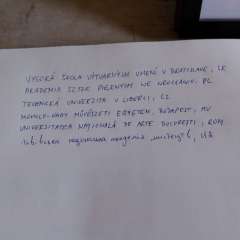 VYSOKÁ ŠKOLA VÝTVARNÝCH UMENÍ V BRATISLAVE, SK
AKADEMIA SZTUK PIĘKNYCH WE WROCŁAWIU, PL
TECHNICKÁ UNIVERZITA V LIBERCI, CZ
MOHOLY-NAGY MŰVÉSZETI EGYETEM, BUDAPEST, HU
UNIVERSITATEA NAȚIONALĂ DE ARTE BUCUREȘTI, ROM